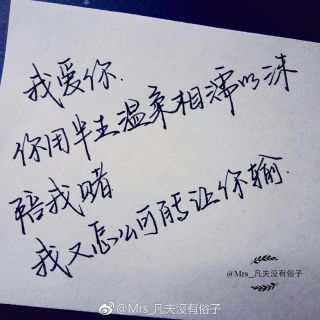 我爱你.
你用半生温柔相濡以沫
陪我赌
我又怎么可能让你输.
@Mrs_凡夫没有俗子
@Mrs_凡夫没有俗子